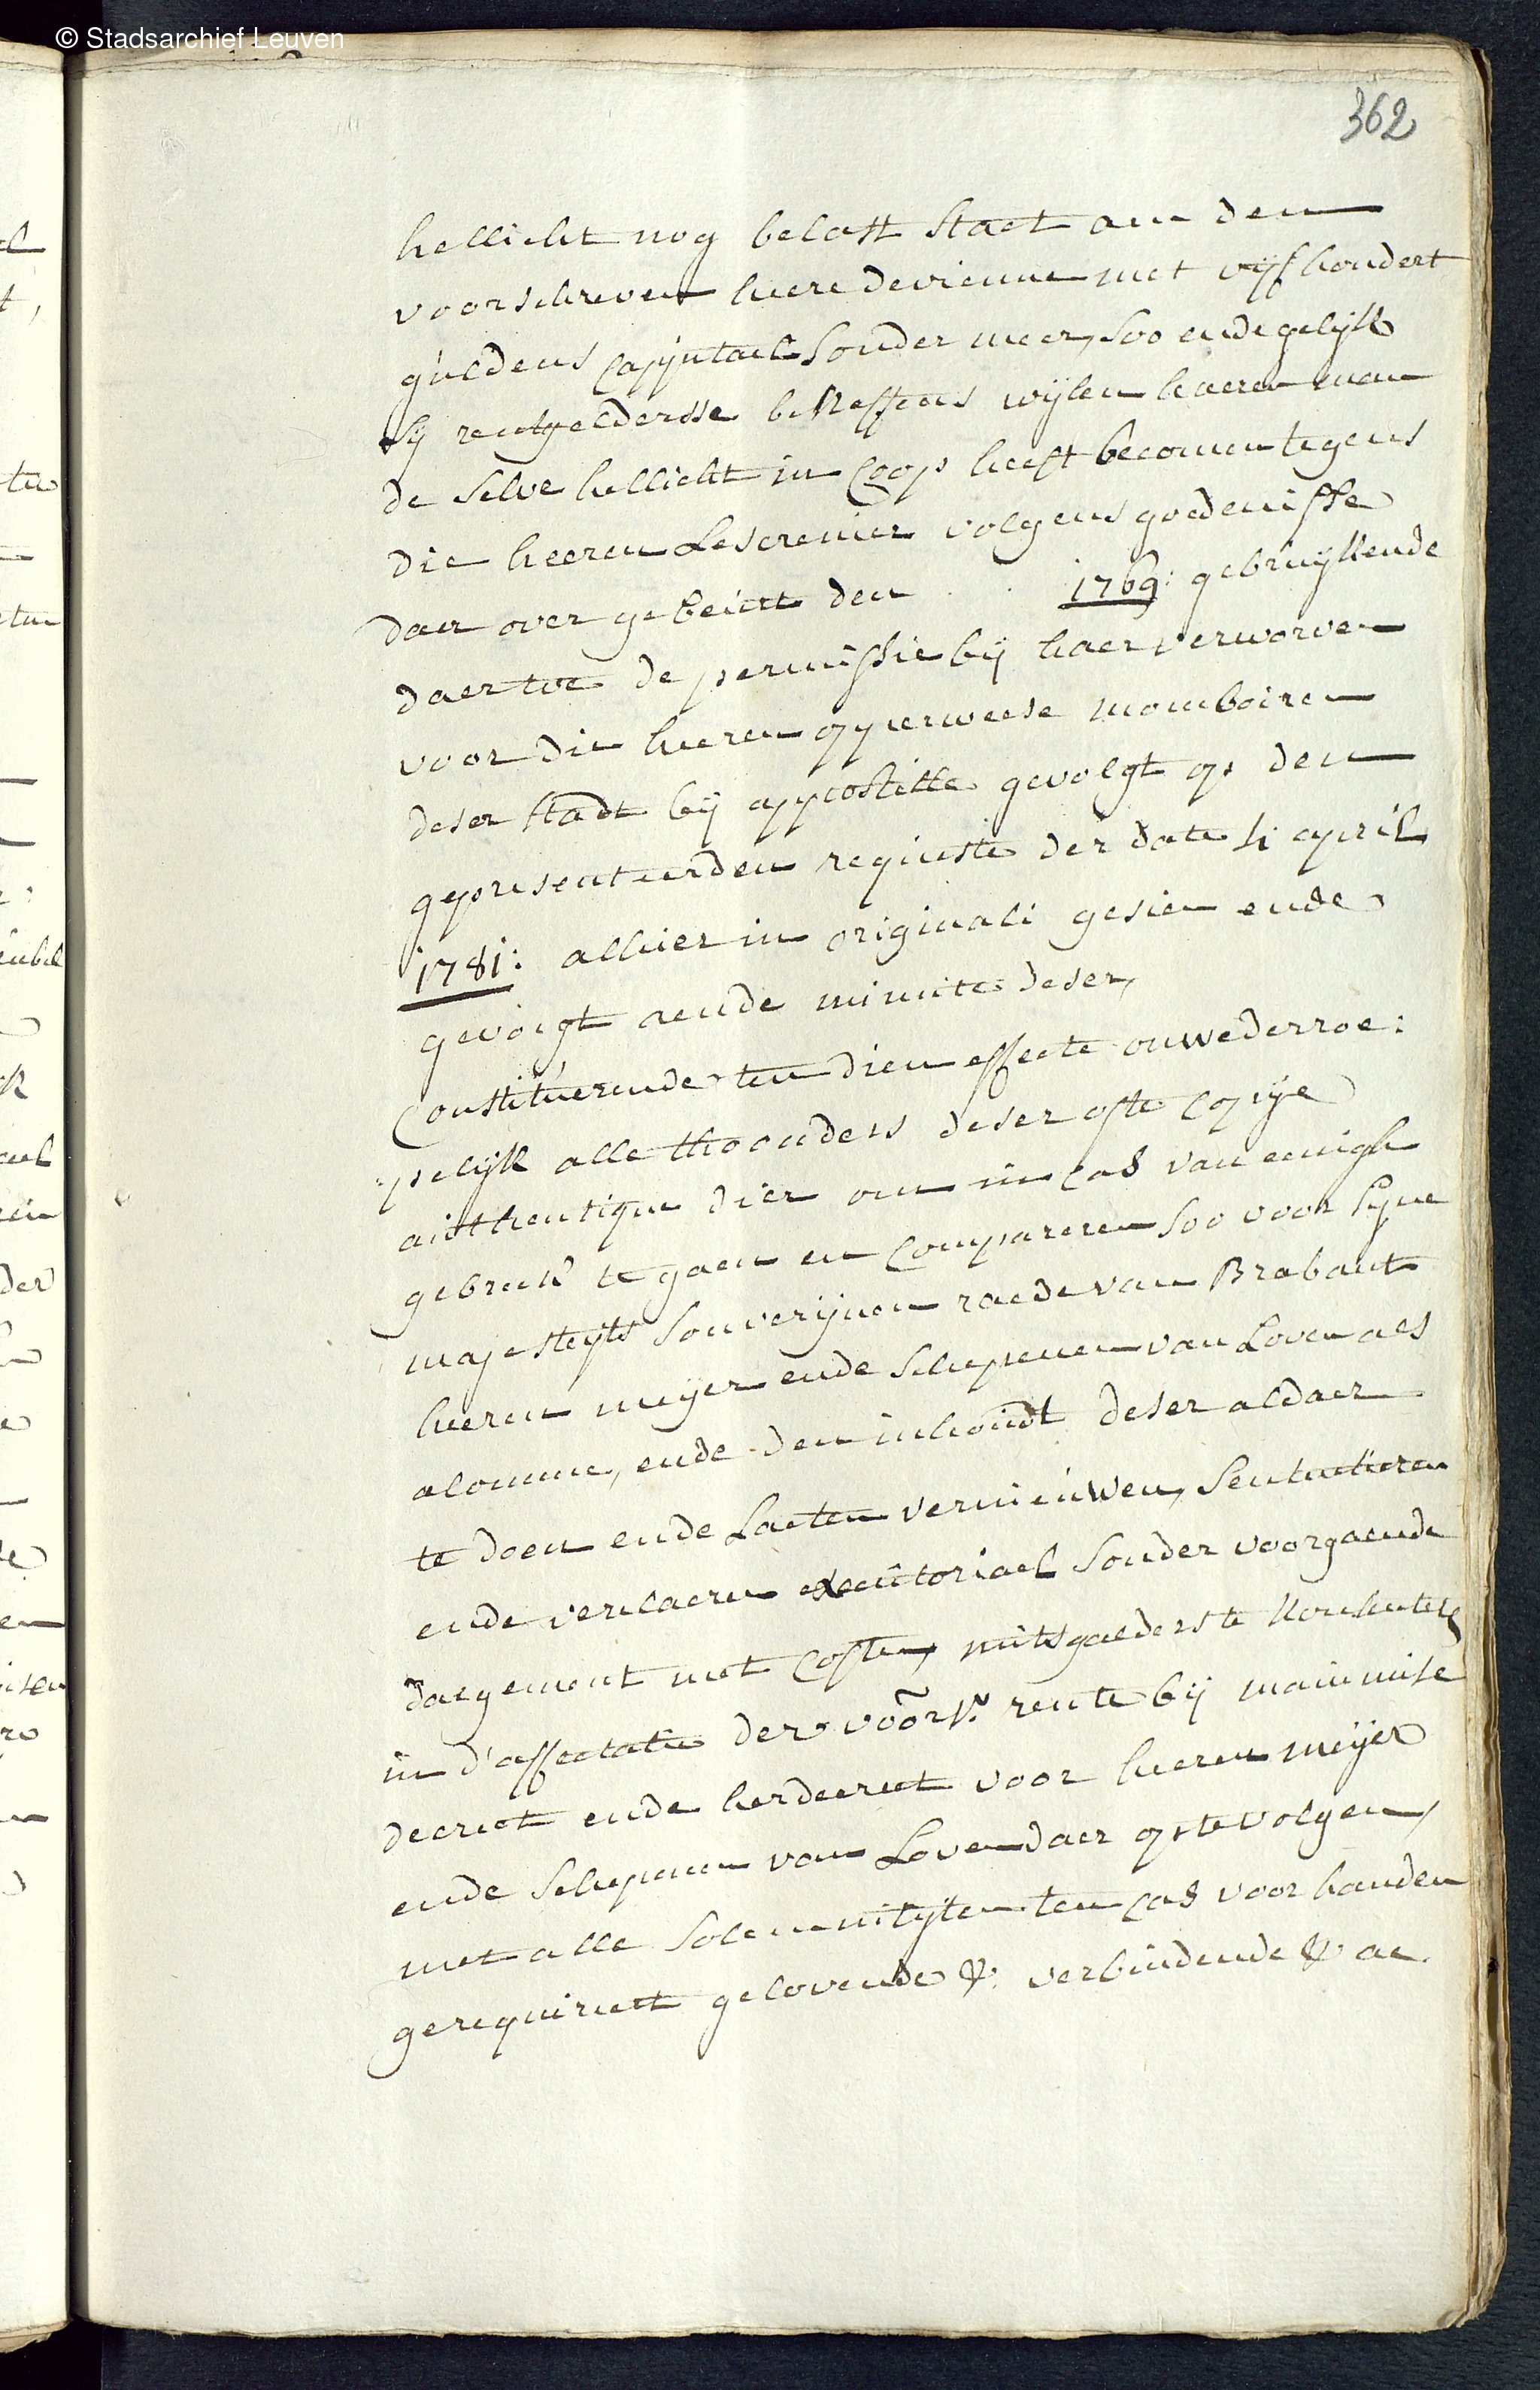 © Stadsarchief Leuven
362
hellicht nog belast staet aen den
voorschreven heere devienne met vijf hondert
guldens capitael sonder meer, soo ende gelijk
sij rentgeldersse beneffens wijlen haeren man
de selve hellicht in coop heeft becomen tegens
die heeren Lescrenier volgens goedenisse
daer over gebeurt den . . 1769: gebruijkende
daer toe de permissie bij haer verworven
voor die heeren opperweese momboiren
deser stadt bij appostille gevolgt op den
gepresenteerden requeste der date 4 april
1781: alhier in originali gesien ende
gevoegt aende minute deser,
Constituerende ten dien effecte onwederroe:
:pelijk alle thoonders deser ofte copije
authentique dier om in cas van eenigh
gebrek te gaen en compareren soo voor sijne
majesteijts souverijnen raede van Brabant
heeren meijer ende schepenen van Loven als
alomme, ende den inhoudt deser aldaer
te doen ende laeten vernieuwen, sententieren
ende verclaeren executoriael sonder voorgaende
daegement met costen, mitsgaeders te
in d'affectatie der voors. rente bij mainmise
decreet ende herdecreet voor heeren meijer
ende schepenen van Loven daer op te volgen,
met alle solemnitijten ten cas voor handen
gerequireert gelovende &. verbindende & ac.